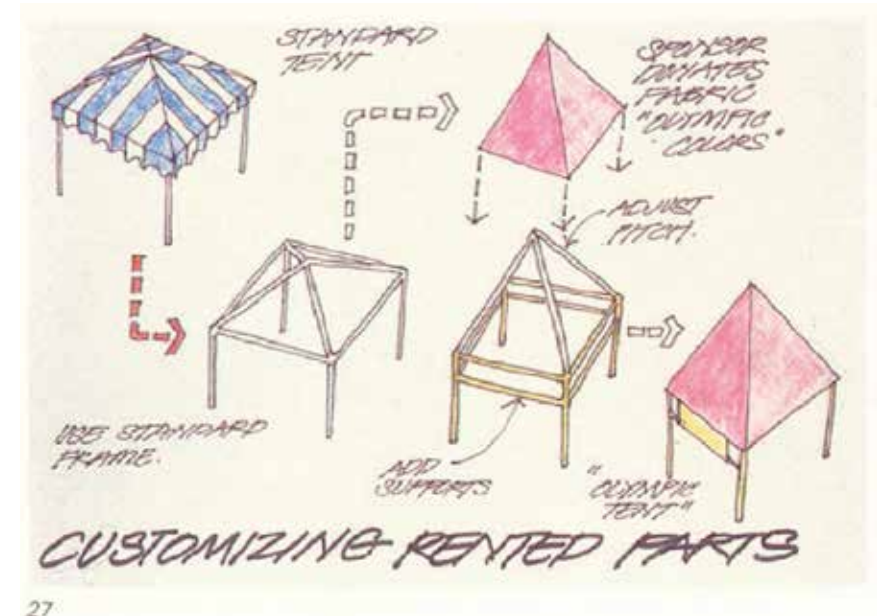 STANDARD
TENT
SPONSOR
DONATES
FABRIC
"OLYMPIC
COLORS"
ADJUST
PITCH.
USE STANDARD
FRAME.
ADD
SUPPORTS
"OLYMPIC
TENT"
CUSTOMIZING RENTED PARTS
27